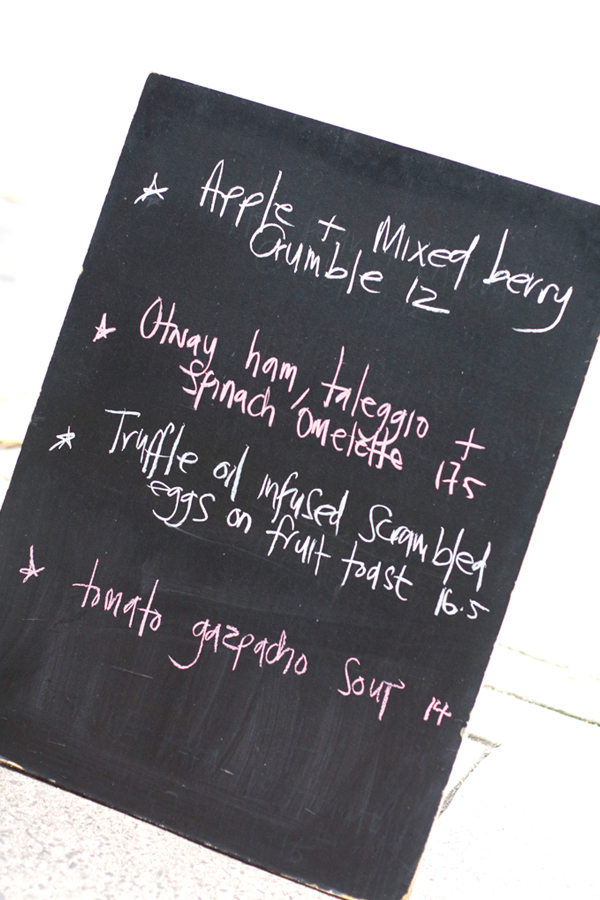 ☆ Apple + Mixed berry
Crumble 12
☆ Otway ham, taleggio +
Spinach Omelette 175
☆ Truffle oil infused Scrambled
eggs on fruit toast 16.5
☆ tomato gazpacho Soup 14